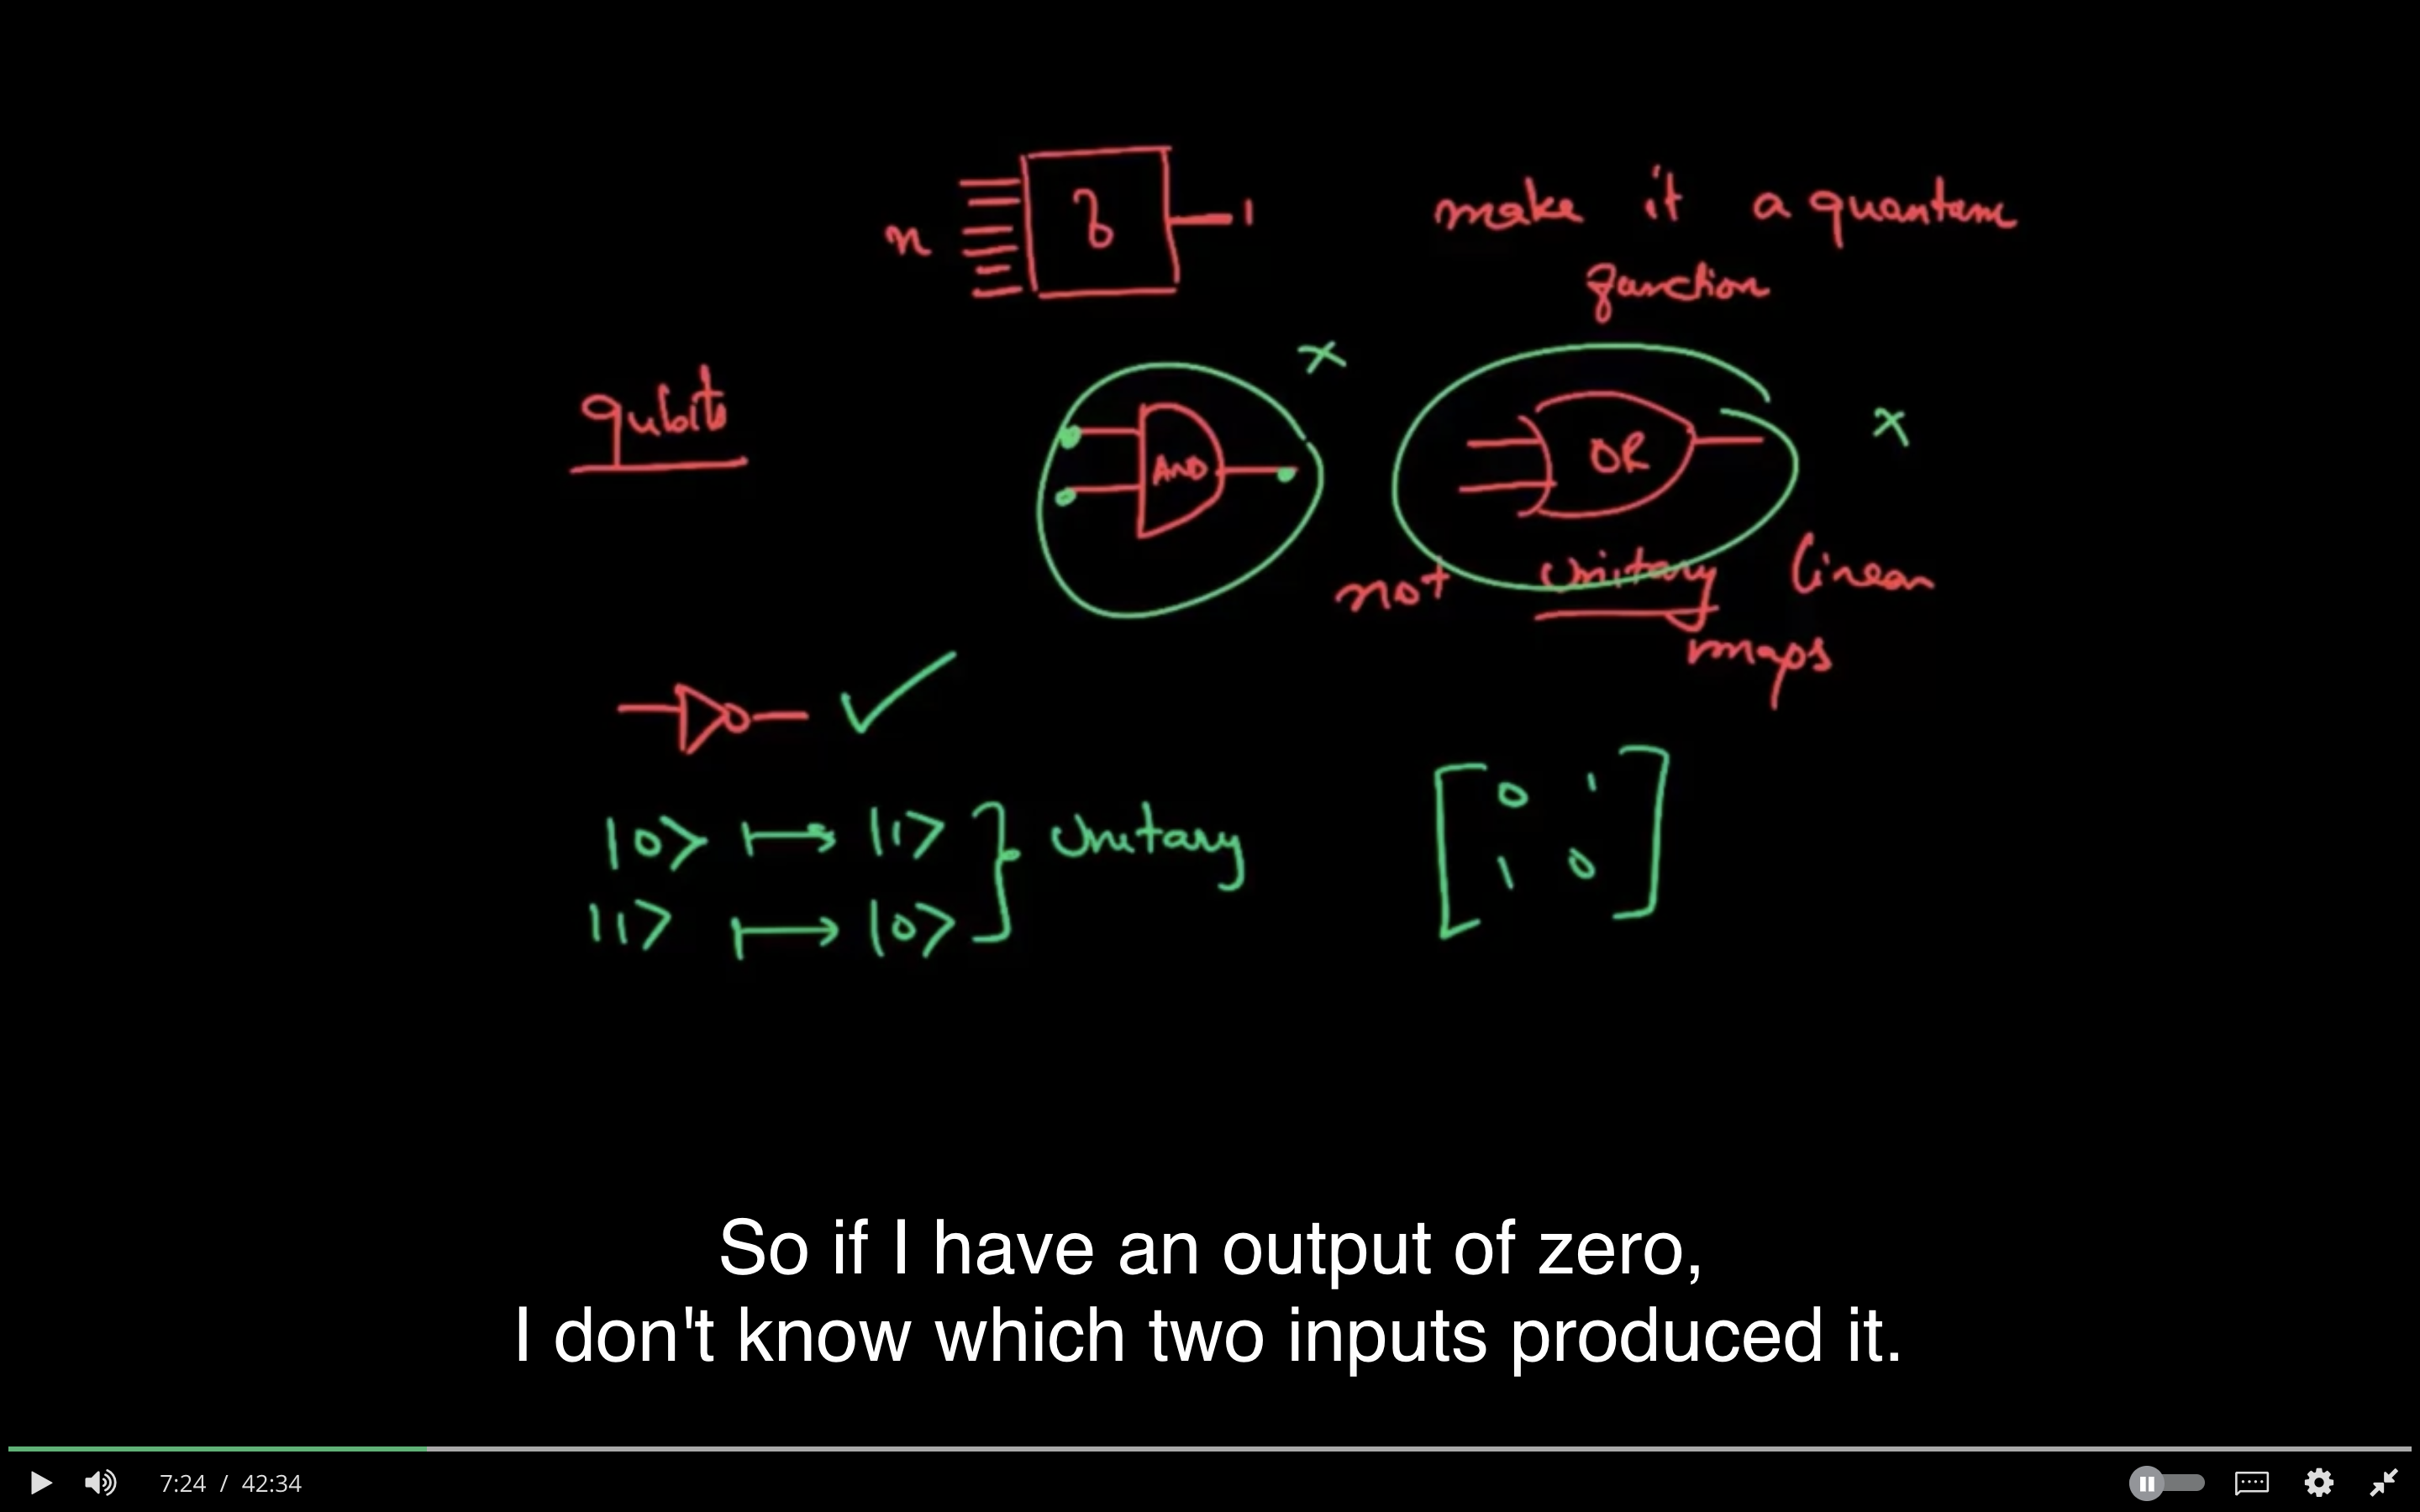 n f 1 make it a quantum
function
qubits
AND x OR x
not unitary linear
maps
|0> ↦ |1> } Unitary
|1> ↦ |0>
[ 0 1
1 0 ]
So if I have an output of zero,
I don't know which two inputs produced it.
7:24 / 42:34